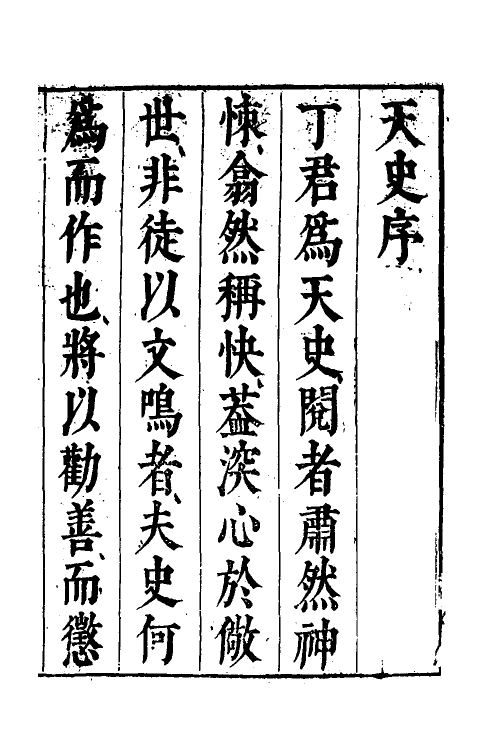 天史序
丁君爲天史、閱者肅然神
悚、翕然稱快、蓋深心於儆
世、非徒以文鳴者、夫史何
爲而作也、將以勸善、而懲